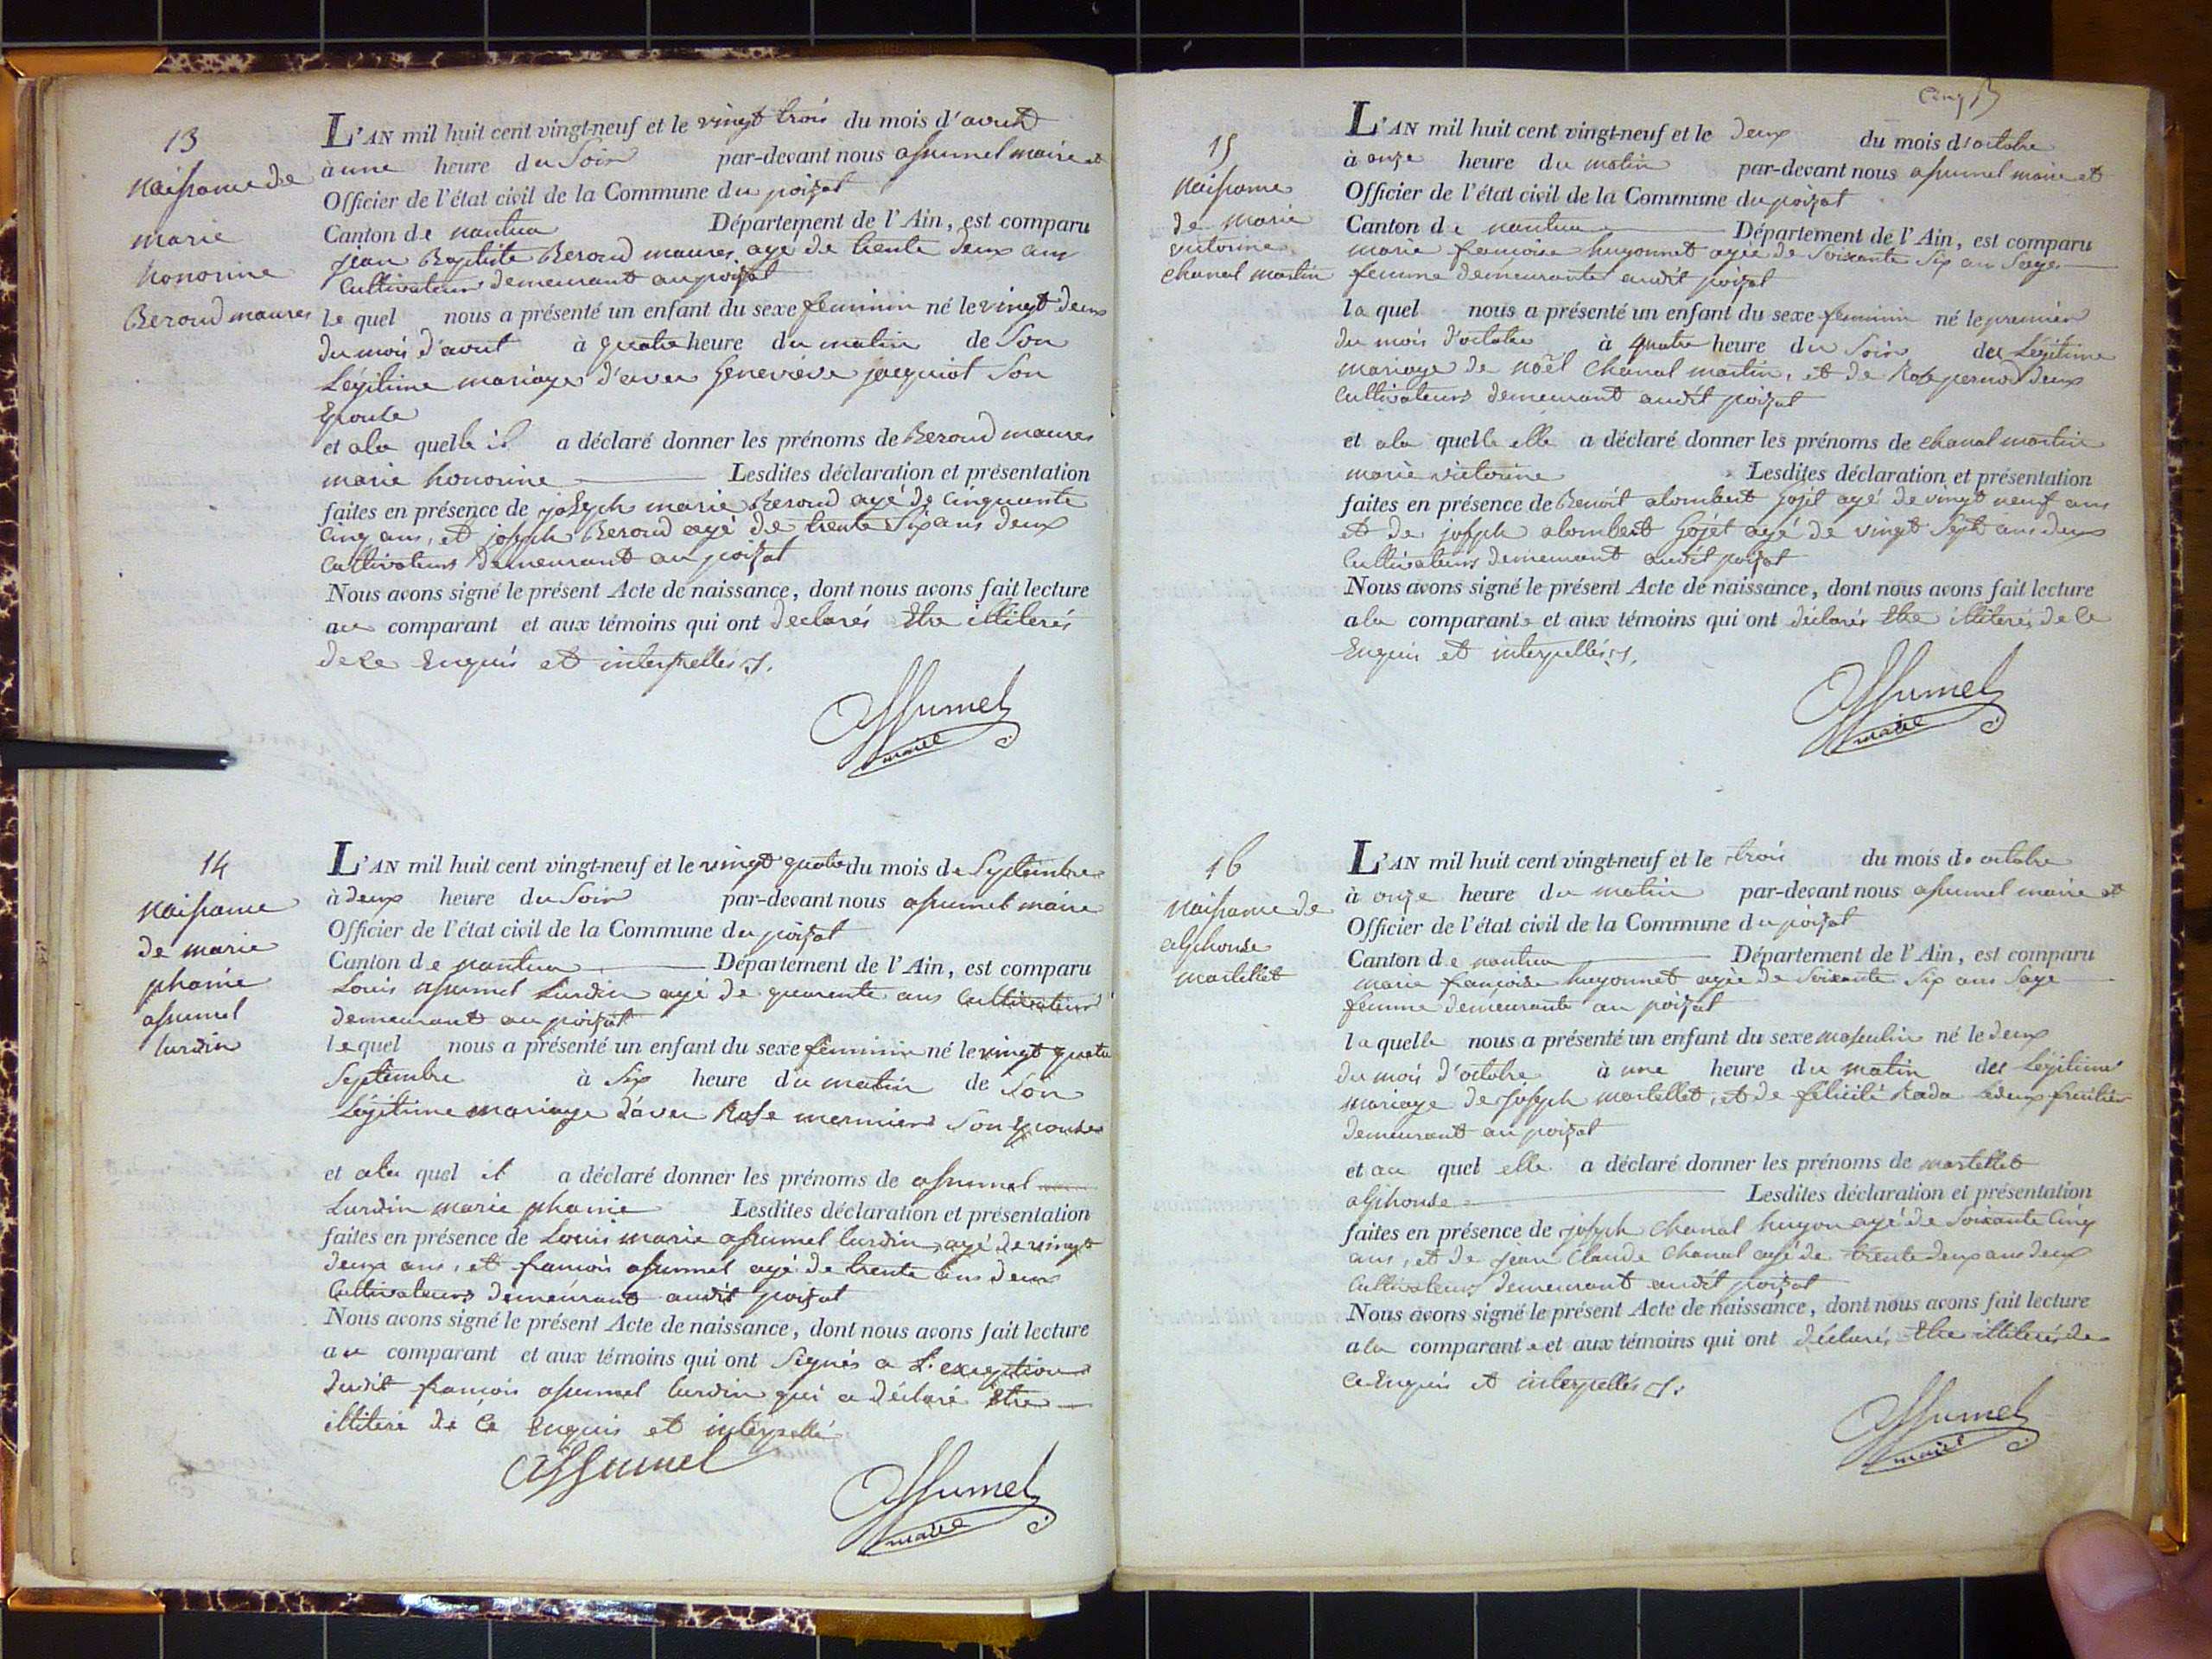 13
naissance de
marie
honorine
Beroud maures
L'AN mil huit cent vingt-neuf et le vingt trois du mois d'aout
à une heure du Soir par-devant nous assumel maire et
Officier de l'état civil de la Commune du poizat
Canton de nantua Département de l'Ain, est comparu
jean Baptiste Beroud maures agé de trente deux ans
Cultivateur demeurant au poizat
le quel nous a présenté un enfant du sexe féminin né le vingt deux
du mois d'aout à quatre heure du matin de Son
Légitime mariage d'avec Geneviève jacquiot Son
Epouse
et a la quelle il a déclaré donner les prénoms de Beroud maures
marie honorine Lesdites déclaration et présentation
faites en présence de joseph marie Beroud agé de Cinquante
Cinq ans, et joseph Beroud agé de trente Six ans deux
Cultivateurs demeurant au poizat
Nous avons signé le présent Acte de naissance, dont nous avons fait lecture
au comparant et aux témoins qui ont declarés Etre illiterés
de ce Enquis et interpellés
assumel
maire
14
naissance
de marie
phanie
assumel
lurdin
L'AN mil huit cent vingt-neuf et le vingt quatre du mois de Septembre
à deux heure du Soir par-devant nous assumel maire
Officier de l'état civil de la Commune du poizat
Canton de nantua Département de l'Ain, est comparu
Louis assumel Lurdin agé de quarente ans Cultivateur
demeurant au poizat
le quel nous a présenté un enfant du sexe féminin né le vingt quatre
Septembre à Six heure du matin de Son
Légitime mariage d'avec Rose mermier Son Epouse
et a la quel il a déclaré donner les prénoms de assumel
Lurdin marie phanie Lesdites déclaration et présentation
faites en présence de Louis marie assumel lurdin, agé de vingt
deux ans, et francois assumel agé de trente ans deux
Cultivateurs demeurant audit poizat
Nous avons signé le présent Acte de naissance, dont nous avons fait lecture
au comparant et aux témoins qui ont Signés a L'exeption
dudit francois assumel lurdin qui a déclaré Etre
illiteré de Ce Enquis et interpellé
assumel
assumel
maire
Cinq
15
naissance
de marie
victorine
chanal martin
L'AN mil huit cent vingt-neuf et le deux du mois d'octobre
à onze heure du matin par-devant nous assumel maire et
Officier de l'état civil de la Commune du poizat
Canton de nantua Département de l'Ain, est comparu
marie francoise hugonnet agée de Soixante Six ans Sage
femme demeurante audit poizat
la quel nous a présenté un enfant du sexe feminin né le premier
du mois d'octobre à quatre heure du Soir du Légitime
mariage de noël Chanal martin, et de Rose pernod deux
Cultivateurs demeurant audit poizat
et a la quelle elle a déclaré donner les prénoms de chanal martin
marie victorine Lesdites déclaration et présentation
faites en présence de Benoit alombert Gojet agé de vingt neuf ans
et de joseph alombert Gojet agé de vingt Sept ans deux
Cultivateurs demeurant audit poizat
Nous avons signé le présent Acte de naissance, dont nous avons fait lecture
a la comparante et aux témoins qui ont déclarés Etre illiterés de Ce
Enquis et interpellés
assumel
maire
16
naissance de
alphonse
martellet
L'AN mil huit cent vingt-neuf et le trois du mois de octobre
à onze heure du matin par-devant nous assumel maire et
Officier de l'état civil de la Commune du poizat
Canton de nantua Département de l'Ain, est comparu
marie françoise hugonnet agée de Soixante Six ans Sage
femme demeurante au poizat
la quelle nous a présenté un enfant du sexe masculin né le deux
du mois d'octobre à une heure du matin du Légitime
mariage de joseph martellet, et de félicité Rada deux fruitier
demeurant au poizat
et au quel elle a déclaré donner les prénoms de martellet
alphonse Lesdites déclaration et présentation
faites en présence de joseph Chanal hugon agé de Soixante Cinq
ans, et de jean Claude Chanal agé de trente deux ans deux
Cultivateurs demeurant audit poizat
Nous avons signé le présent Acte de naissance, dont nous avons fait lecture
a la comparante et aux témoins qui ont déclarés Etre illiterés de
Ce Enquis et interpellés
assumel
maire